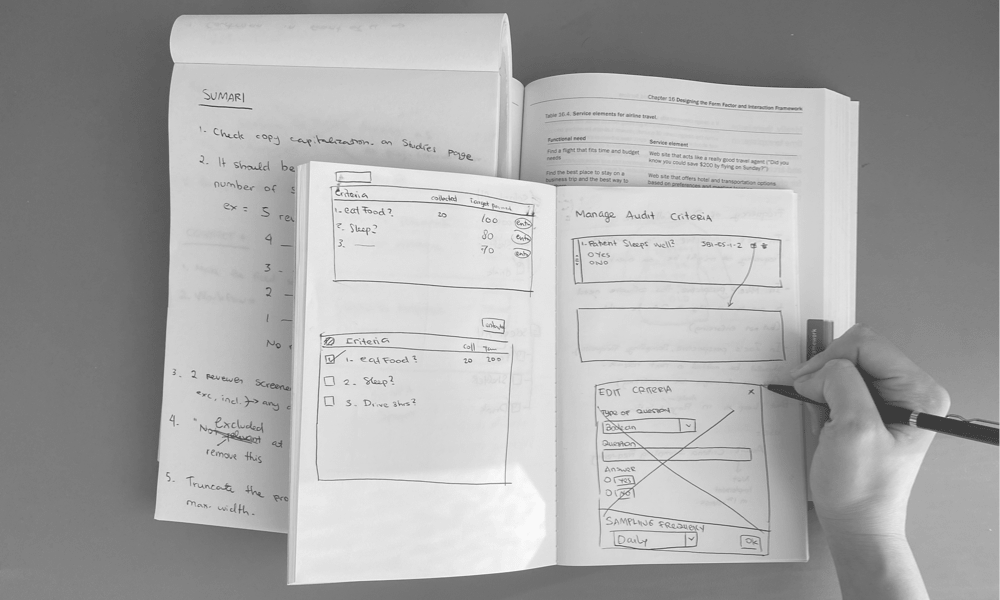 SUMARI
1. Check copy capitalization. on Studies page
2. It should be
number of
ex = 5 rev
4 —
3 -
2 —
1 —
No
3. 2 reviewer screene
exc, incl. any
4. "Excluded
"Not at
remove this
5. Truncate the pro
max. width.
Chapter 16 Designing the Form Factor and Interaction Framework
Table 16.4. Service elements for airline travel.
Functional need Service element
Find a flight that fits time and budget needs
Web site that acts like a really good travel agent ("Did you know you could save $200 by flying on Sunday?")
Find the best place to stay on a business trip and the best way to
Web site that offers hotel and transportation options, based on preferences and
Criteria collected Target
1. eat Food? 20 100
2. Sleep? 80
3. — 70
Criteria coll
1. eat Food? 20 200
2. Sleep?
3. Drive
Manage Audit Criteria
1. Patient Sleeps well? SBI-05-1-2
O Yes
O No
EDIT CRITERIA x
TYPE OF QUESTION
Boolean
QUESTION
Answer
O YES
O NO
SAMPLING FREQUENCY
Daily OK